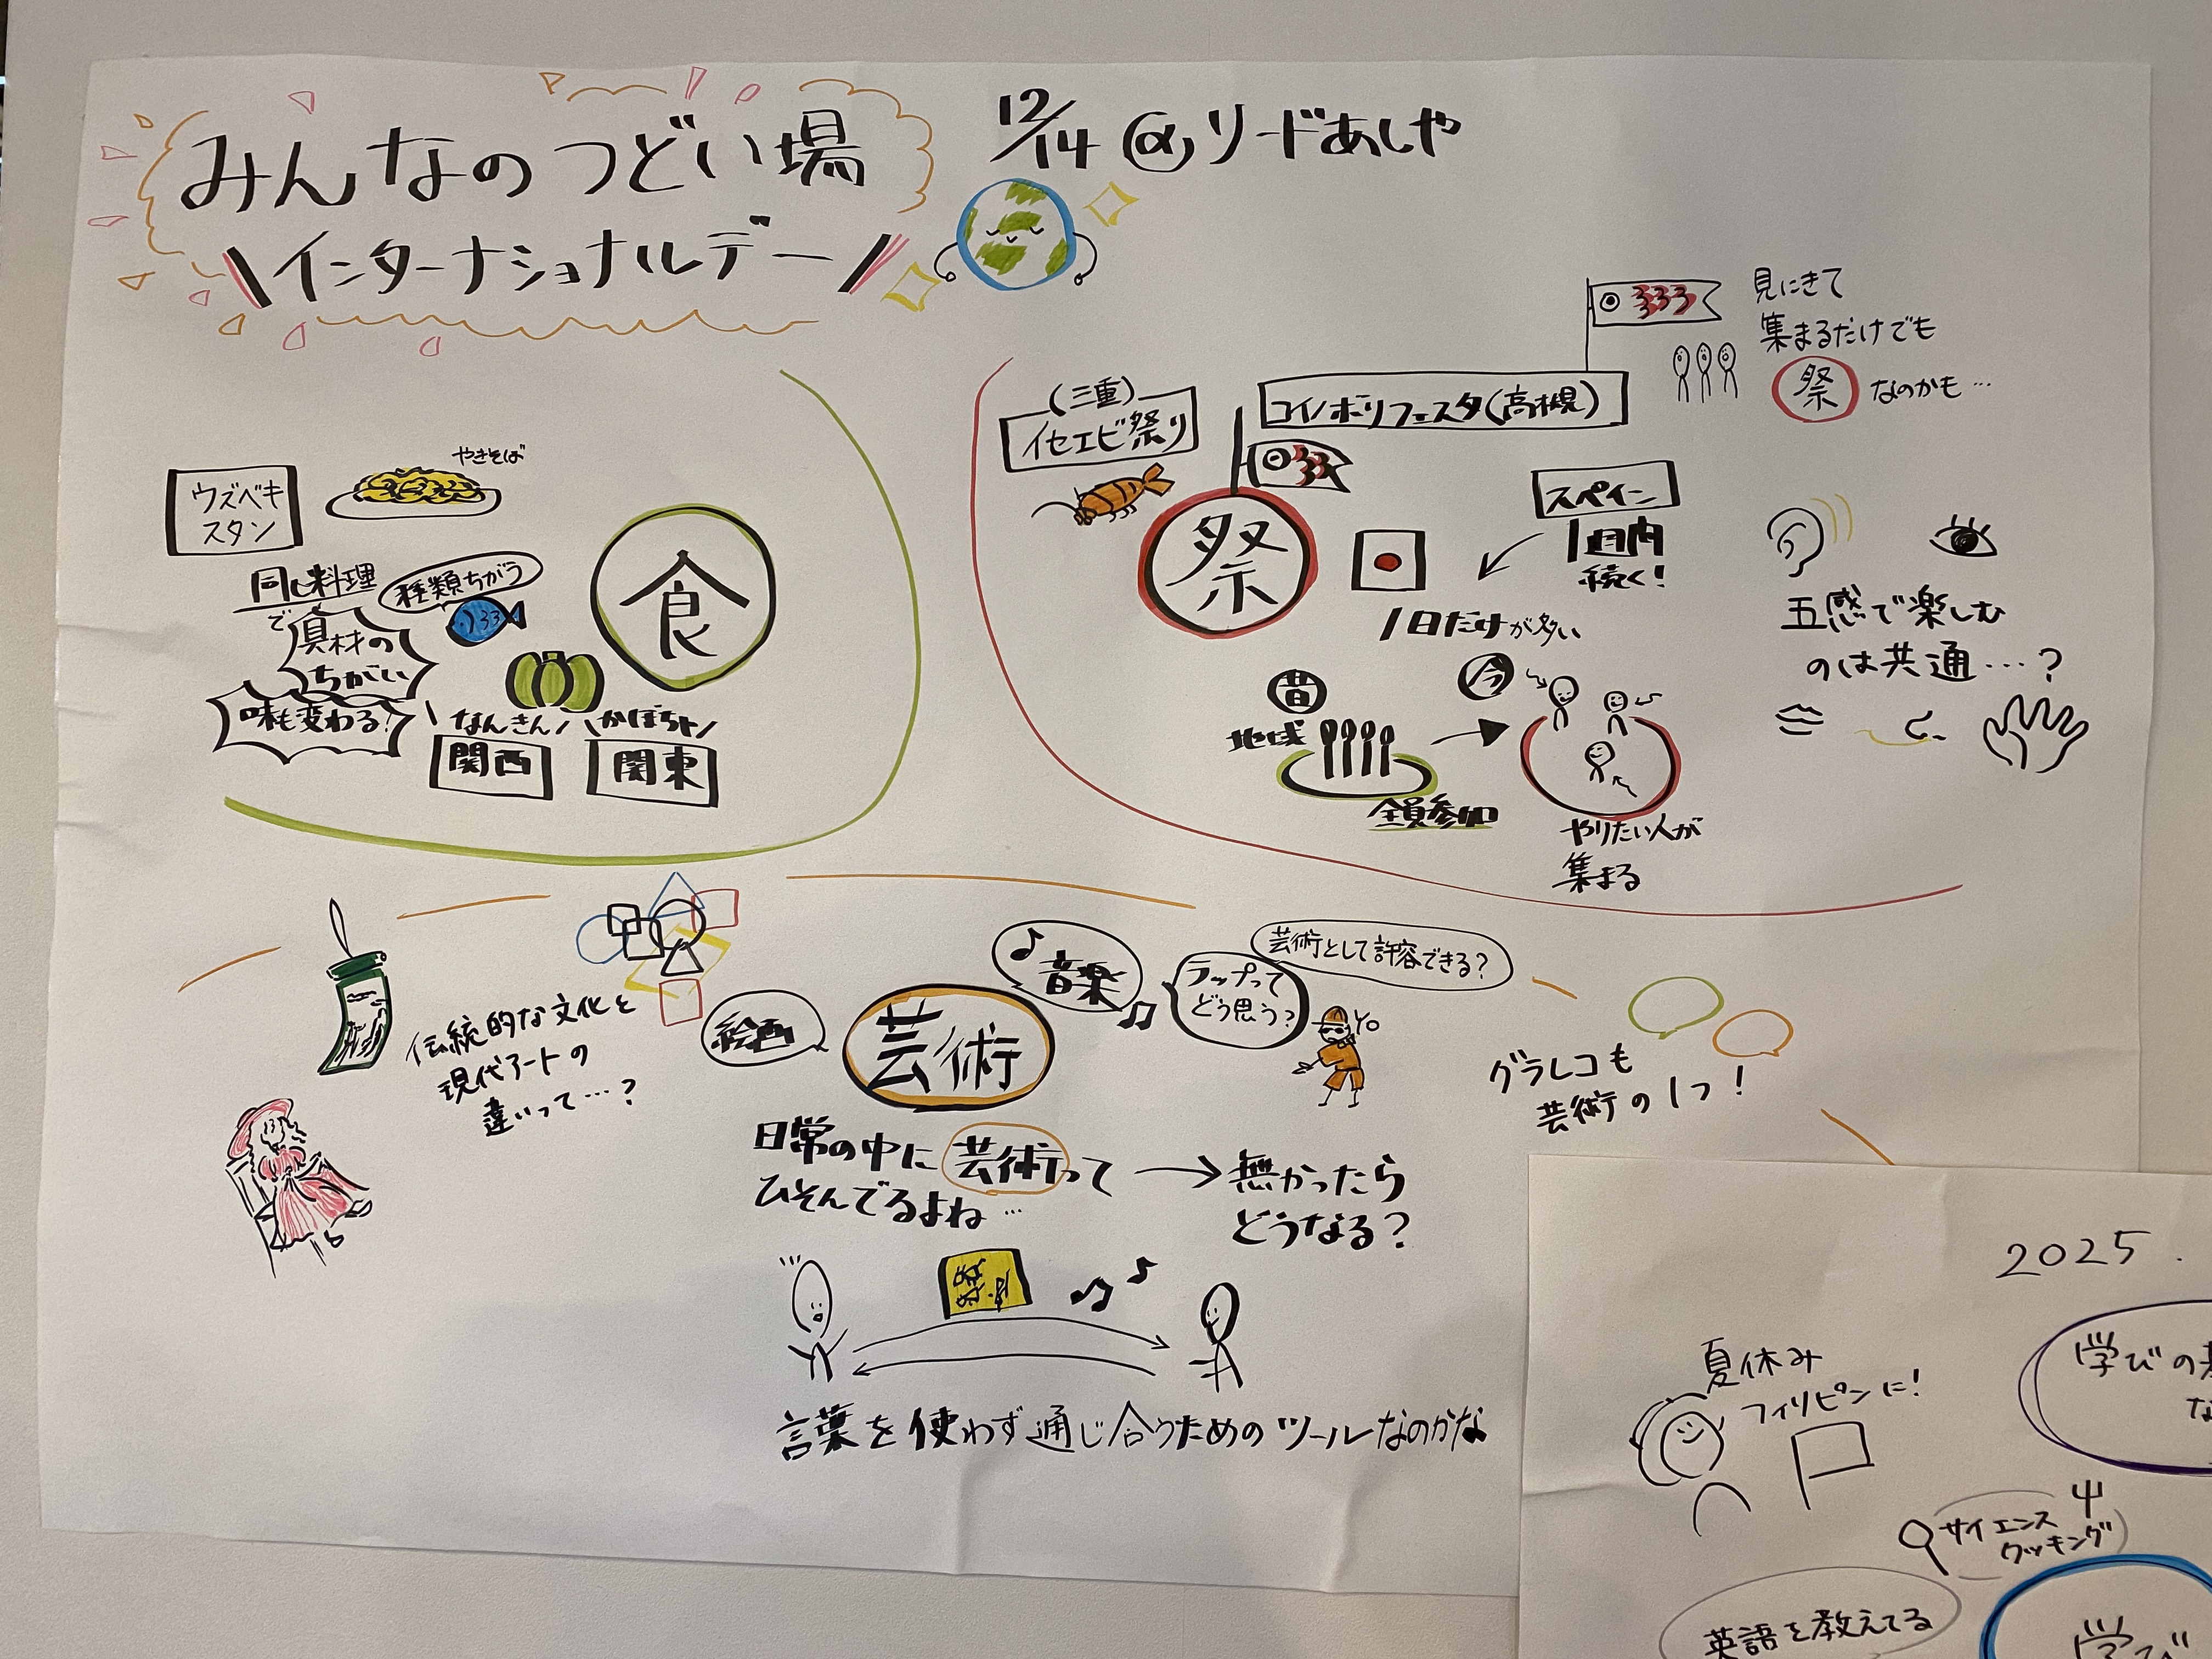 みんなのつどい場
\インターナショナルデー/
12/14 @リードあしや
ウズベキ
スタン
やきそば
同じ料理
で
具材の
ちがい
味も変わる!
種類ちがう
食
\なんきん/
関西
\かぼちゃ/
関東
(三重)
イセエビ祭り
コイノボリフェスタ(高槻)
見にきて
集まるだけでも
祭なのかも…
祭
スペイン
1週間
続く!
1日だけが多い
昔
地域
全員参加
今
やりたい人が
集まる
五感で楽しむ
のは共通…?
伝統的な文化と
現代アートの
違いって…?
絵画
芸術
音楽
ラップって
どう思う?
芸術として許容できる?
Yo
グラレコも
芸術の1つ!
日常の中に芸術って
ひそんでるよね…
無かったら
どうなる?
言葉を使わず通じ合うためのツールなのかな
2025.
夏休み
フィリピンに!
学びの
な
サイエンス
クッキング
英語を教えてる
学び